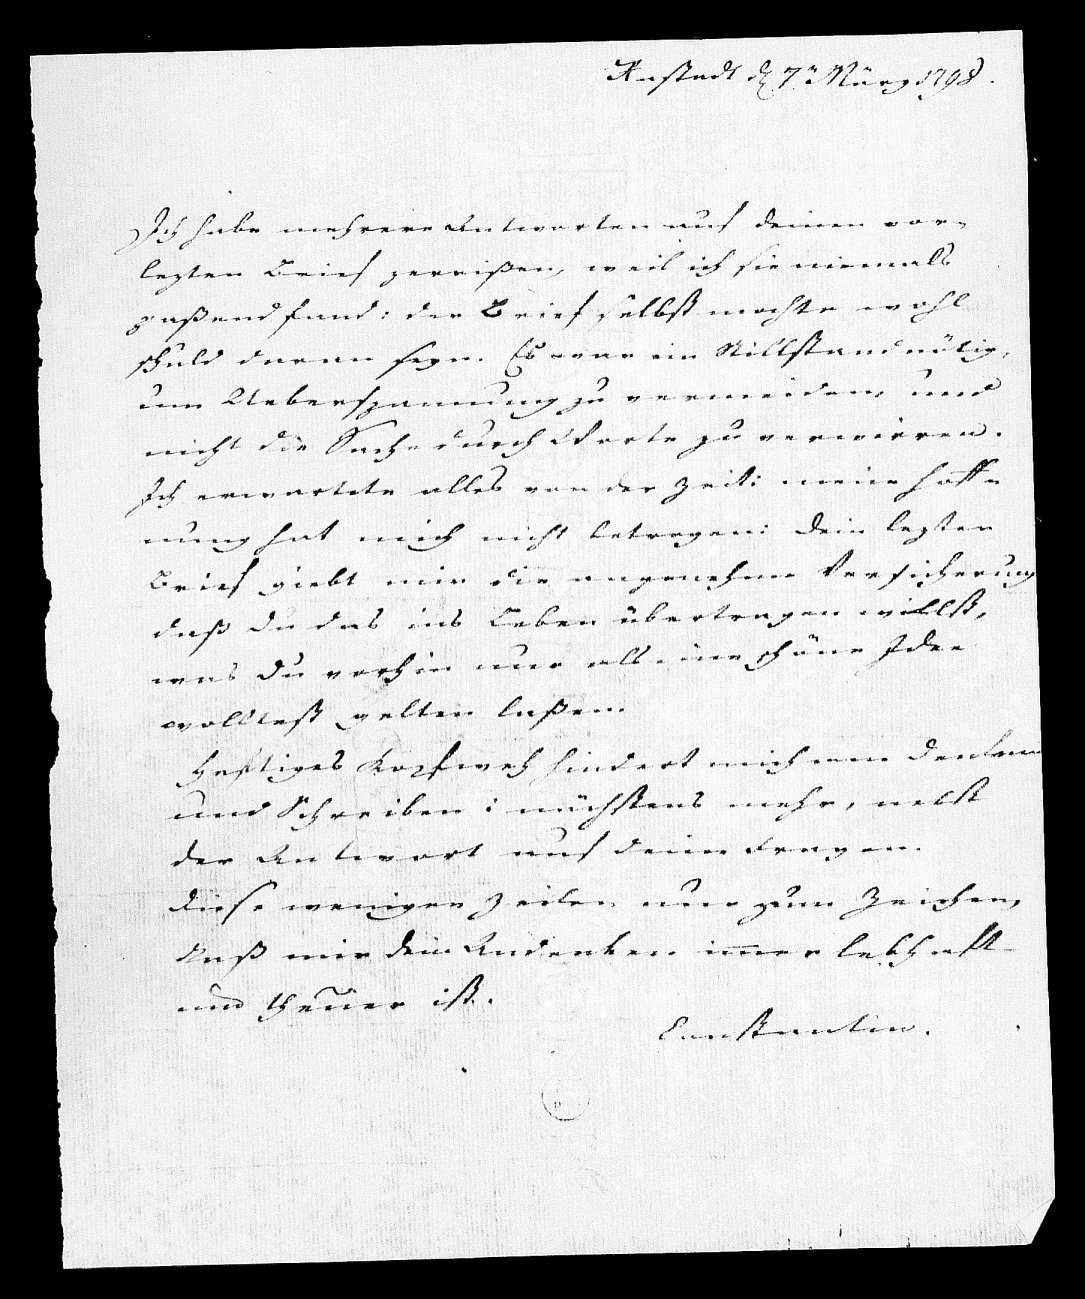 Rastadt d 7n März 1798.
Ich habe mehrere Antworten auf deinen vor-
lezten Brief zerrißen, weil ich sie niemals
paßend fand: der Brief selbst mochte wohl
schuld daran seyn. Es war ein Stillstand nötig,
um Ueberspannung zu vermeiden, und
nicht die Sache durch Worte zu verwirren.
Ich erwartete alles von der Zeit: meine Hoff-
nung hat mich nicht betrogen: dein lezter
Brief giebt mir die angenehme Versicherung
daß du das ins Leben übertragen willst,
was du vorhin nur als eine schöne Idee
wolltest gelten laßen.
Heftiges Kopfweh hindert mich am Denken
und Schreiben: nächstens mehr, nebst
der Antwort auf deine Fragen.
Diese wenigen Zeilen nur zum Zeichen,
daß mir dein Andenken immer lebhaft
und theuer ist.
Constantin.